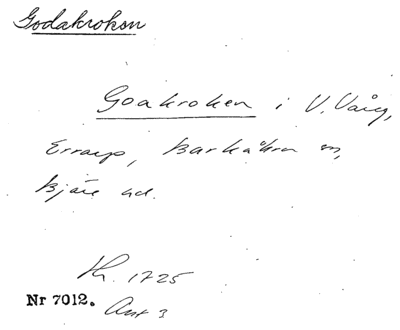 Godakroken
Goakroken i V. Vång,
Errarp, Barkåkra sn,
Bjäre hd.
Kr. 1725
Nr 7012.
Ant 3